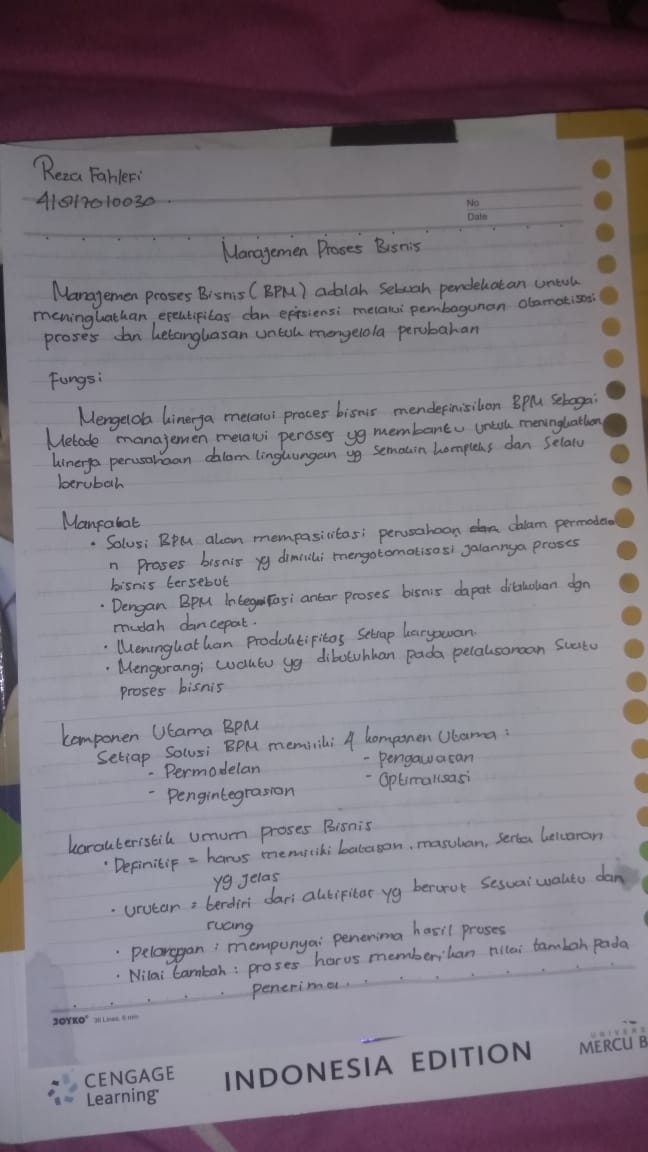 Reza Fahlefi
41817010030
No
Date
Manajemen Proses Bisnis
Manajemen proses Bisnis (BPM) adalah Sebuah pendekatan untuk
meningkatkan efektifitas dan efisiensi melalui pembagunan otamatisasi
proses dan ketangkasan untuk mengelola perubahan
Fungsi
Mengelola kinerja melalui proces bisnis mendefinisikan BPM Sebagai
Metode manajemen melalui peroses yg membantu untuk meningkatkan
kinerja perusahaan dalam lingkungan yg Semakin kompleks dan Selalu
berubah
Manfakat
• Solusi BPM akan mempasilitasi perusahaan dalam permodela
n Proses bisnis yg dimiliki mengotomatisasi jalannya proses
bisnis tersebut
• Dengan BPM Integrasi antar proses bisnis dapat dilakukan dgn
mudah dan cepat.
• Meningkatkan Produktifitas Setiap karyawan.
• Mengurangi waktu yg dibutuhkan pada pelaksanaan Suatu
Proses bisnis
komponen Utama BPM
Setiap Solusi BPM memiliki 4 komponen Utama :
- Permodelan - pengawasan
- Pengintegrasian - Optimalisasi
karakteristik umum proses Bisnis
• Definitif = harus memiliki batasan, masukan, serta keluaran
yg jelas
• urutan : berdiri dari aktifitas yg berurut Sesuai waktu dan
ruang
• pelanggan : mempunyai penerima hasil proses
• Nilai tambah : proses harus memberikan nilai tambah pada
penerima.
JOYKO 36 Lines, 6 mm
CENGAGE
Learning
INDONESIA EDITION
UNIVERS
MERCU B